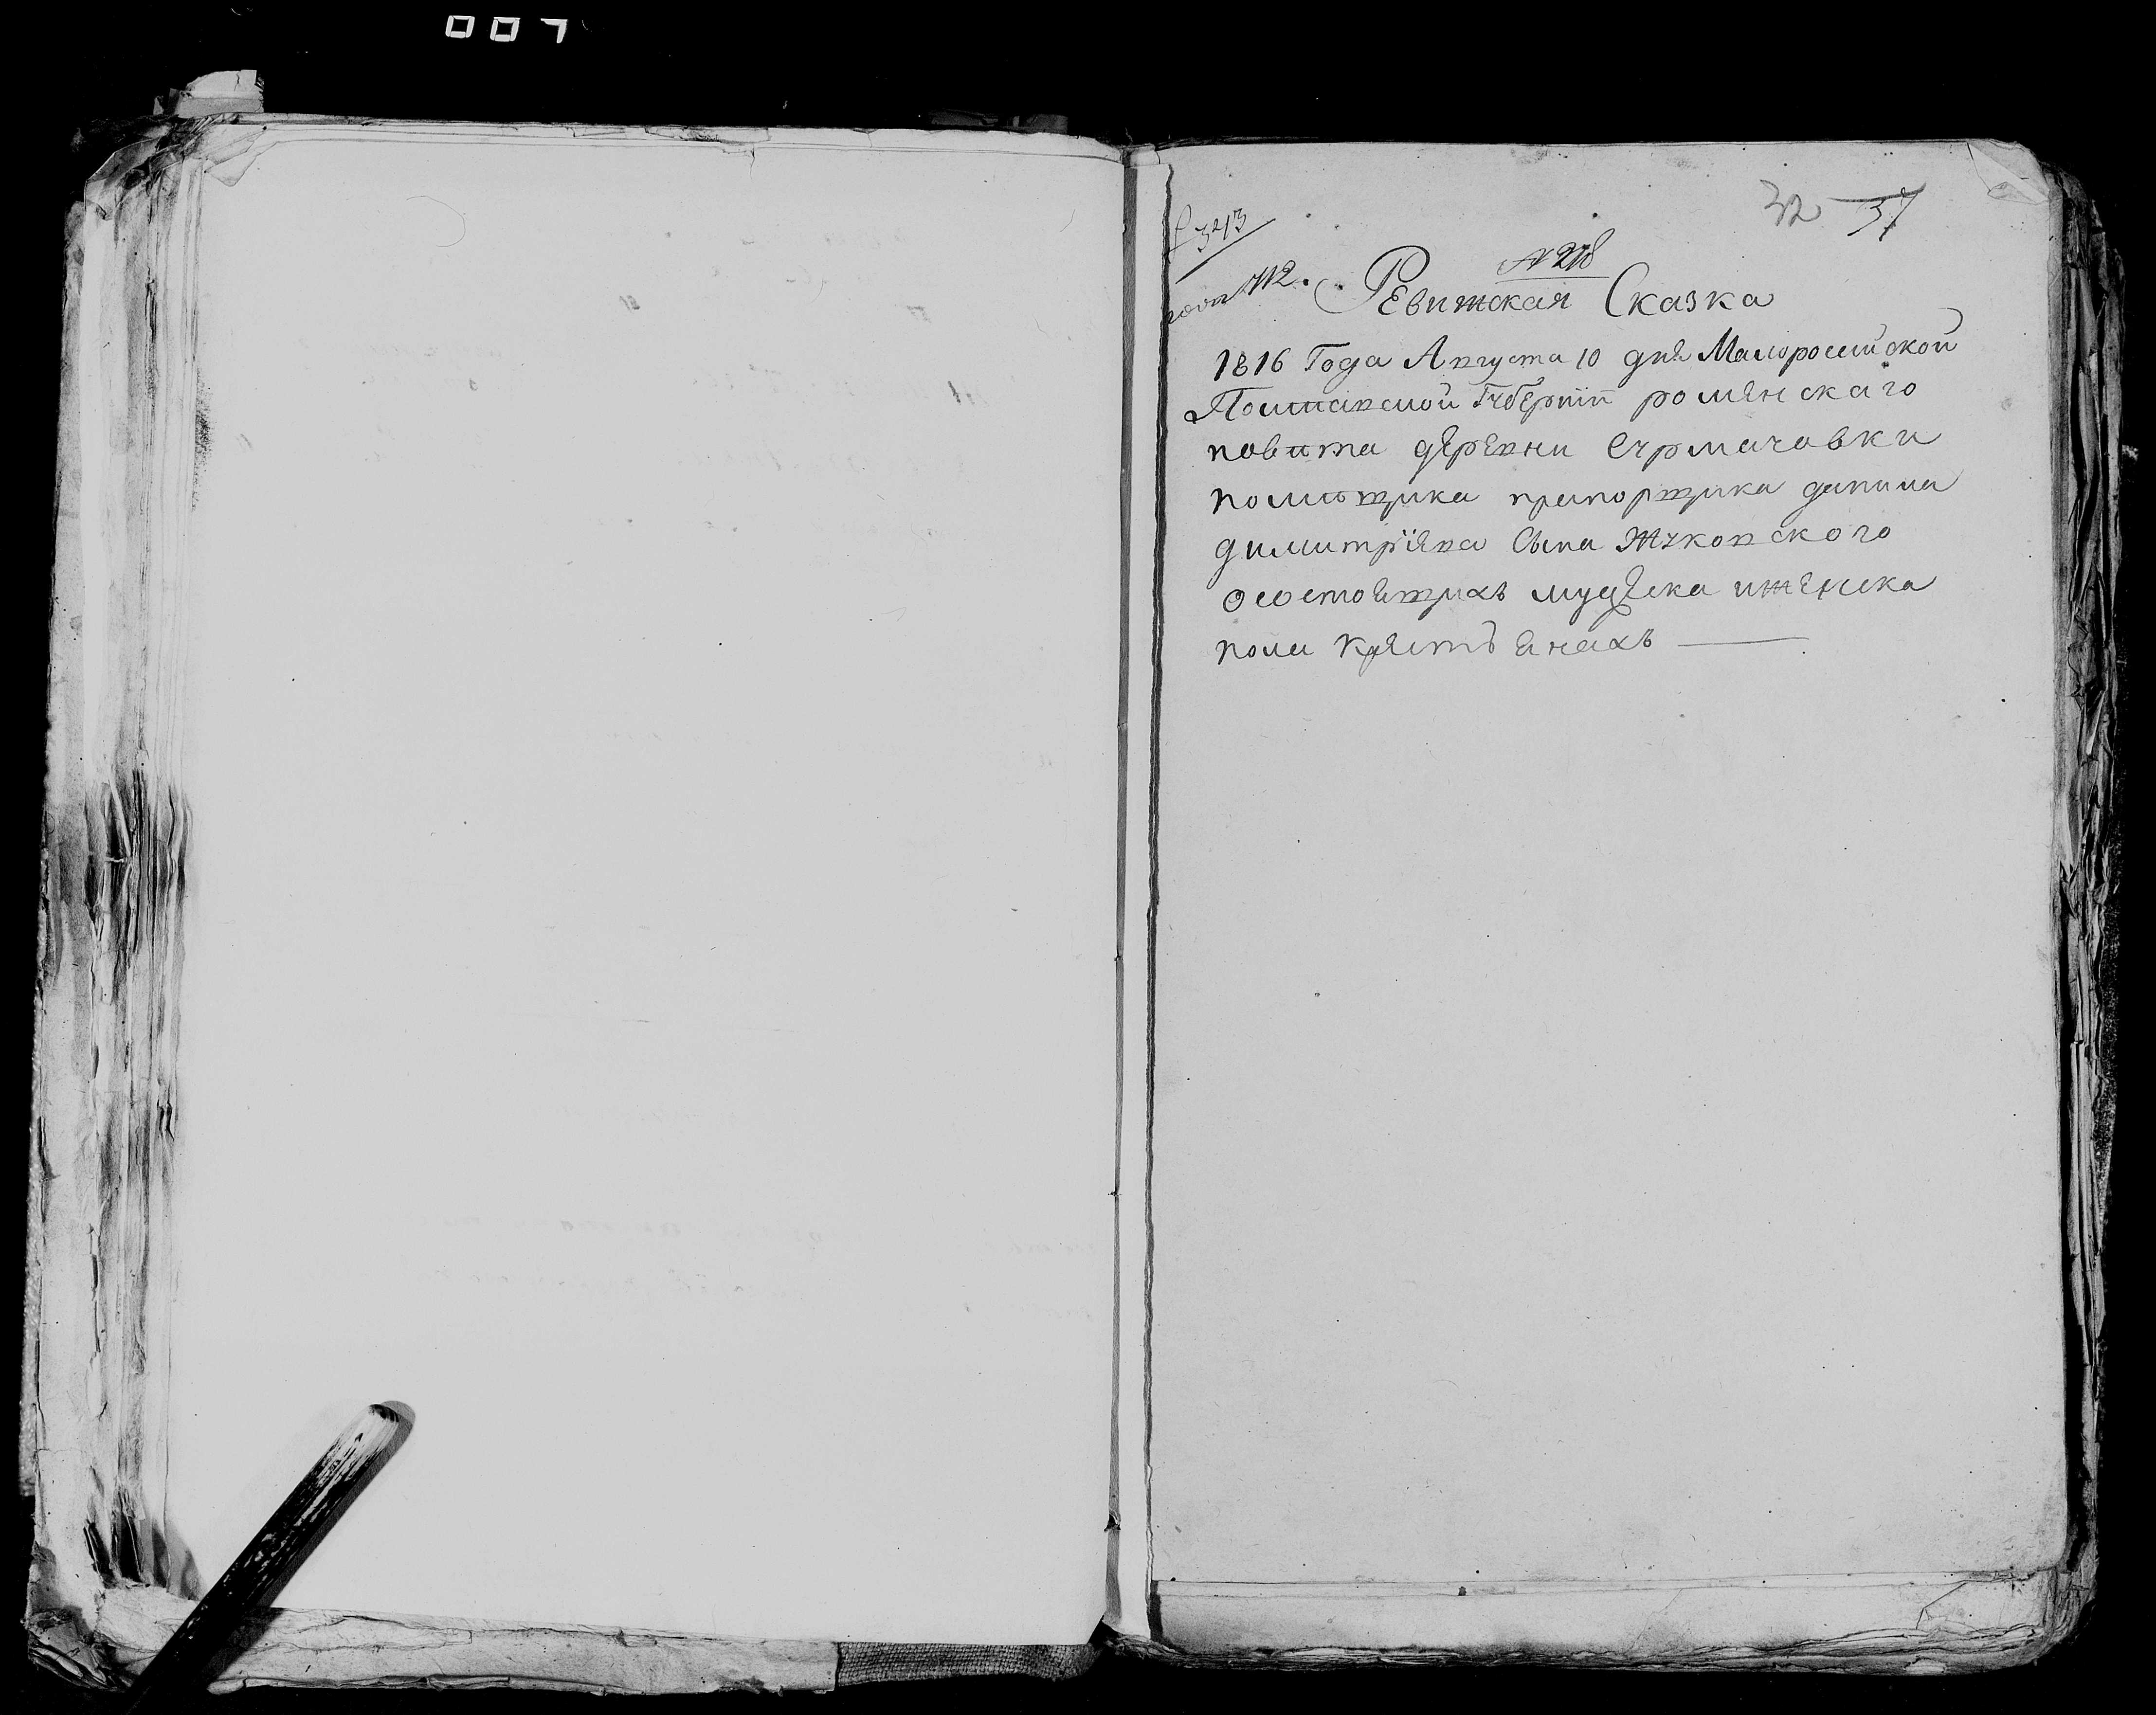 007
32 37
3213
№ 278
112.
Ревижская Сказка
1816 Года Августа 10 дня Малоросийской
Полтавской Губернїи ромѣнскаго
повита деревни Сурмачовки
помещика прапорщика данила
димитрїева Сына Жуковского
осостоящихъ мужеска иженска
пола крестьянахъ